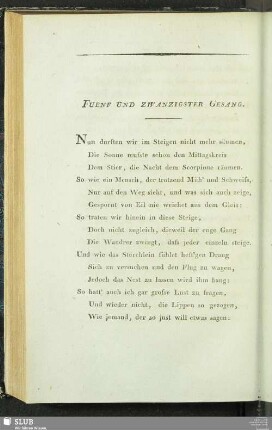 FUENF UND ZWANZIGSTER GESANG.
Nun durften wir im Steigen nicht mehr säumen,
Die Sonne musste schon den Mittagskreis
Dem Stier, die Nacht dem Scorpione räumen.
So wie ein Mensch, der trotzend Müh' und Schweiss,
Nur auf den Weg sieht, und was sich auch zeige,
Gespornt von Eil nie weichet aus dem Gleis:
So traten wir hinein in diese Steige,
Doch nicht zugleich, dieweil der enge Gang
Die Wandrer zwingt, dass jeder einzeln steige.
Und wie das Storchlein fühlet heft'gen Drang
Sich zu versuchen und den Flug zu wagen,
Jedoch das Nest zu lassen wird ihm bang:
So hatt' auch ich gar grosse Lust zu fragen,
Und wieder nicht, die Lippen so gezogen,
Wie jemand, der so just will etwas sagen:
SLUB